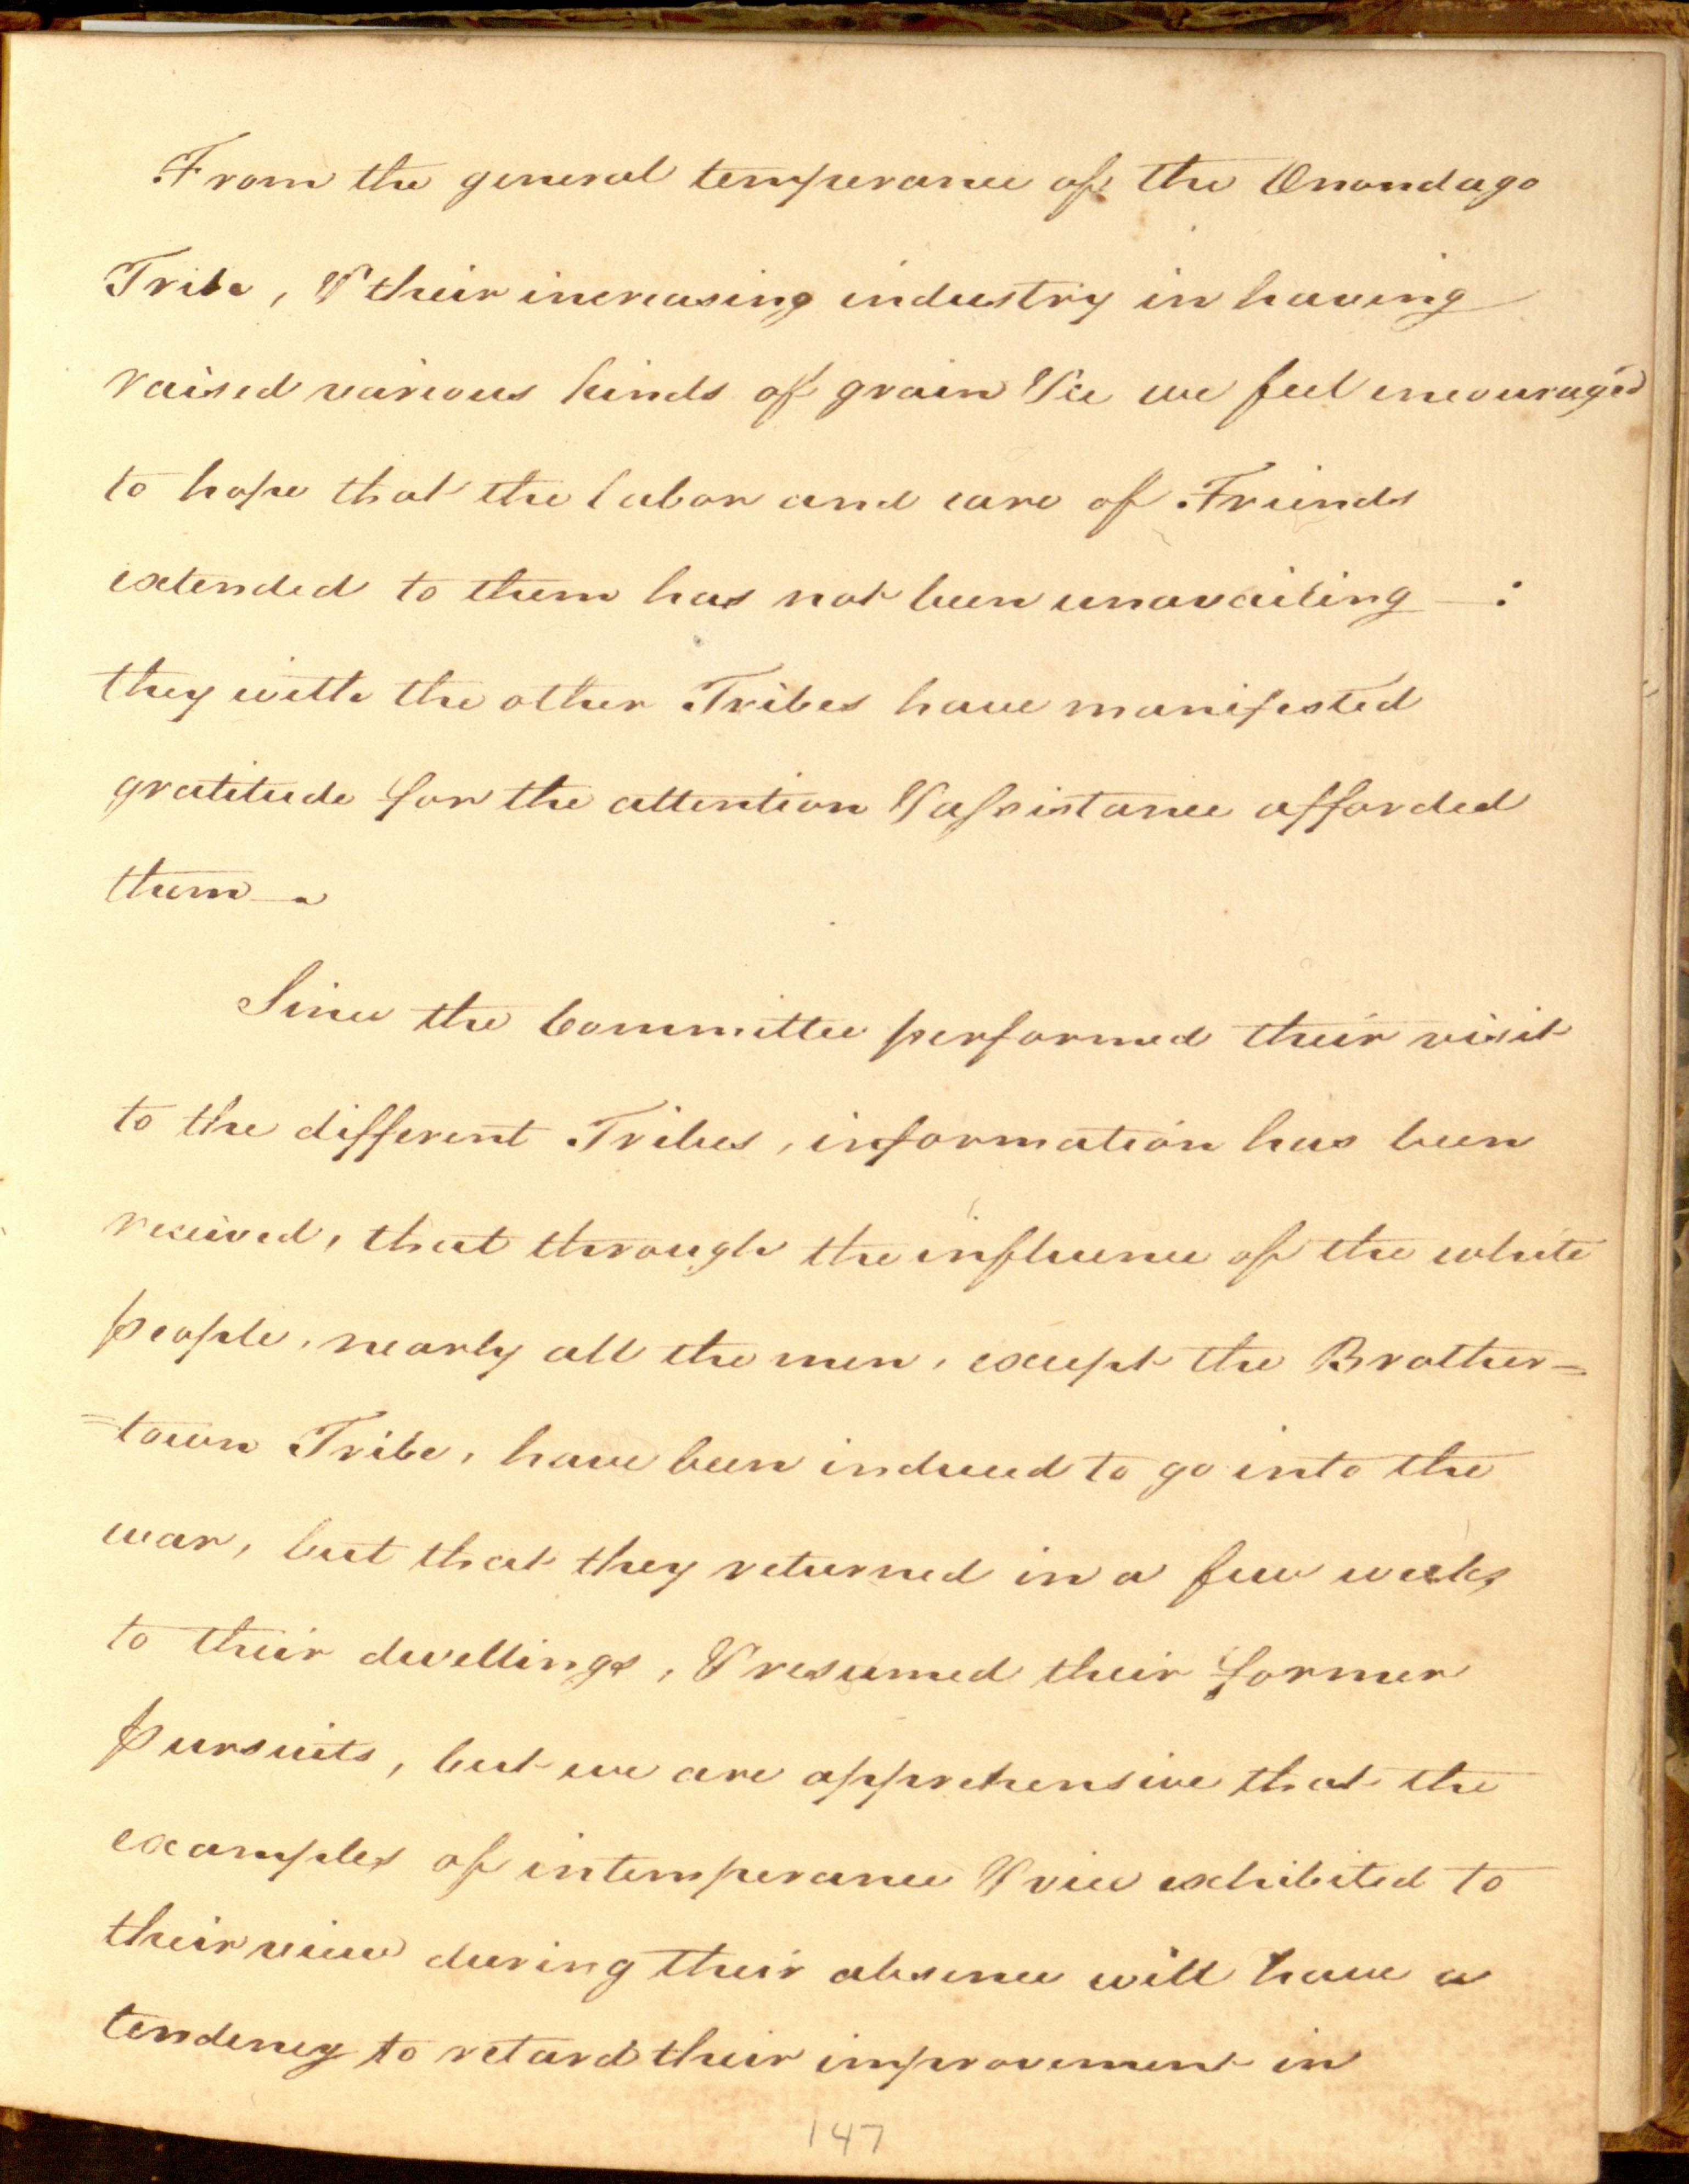 From the general temperance of the Onondago
Tribe, & their increasing industry in having
raised various kinds of grain &c we feel encouraged
to hope that the labor and care of Friends
extended to them has not been unavailing —:
they with the other Tribes have manifested
gratitude for the attention & assistance afforded
them —
Since the Committee performed their visit
to the different Tribes, information has been
received, that through the influence of the white
people, nearly all the men, except the Brother=
=town Tribe, have been induced to go into the
war, but that they returned in a few weeks
to their dwellings, & resumed their former
pursuits, but we are apprehensive that the
examples of intemperance & vice exhibited to
their view during their absence will have a
tendency to retard their improvement in
147